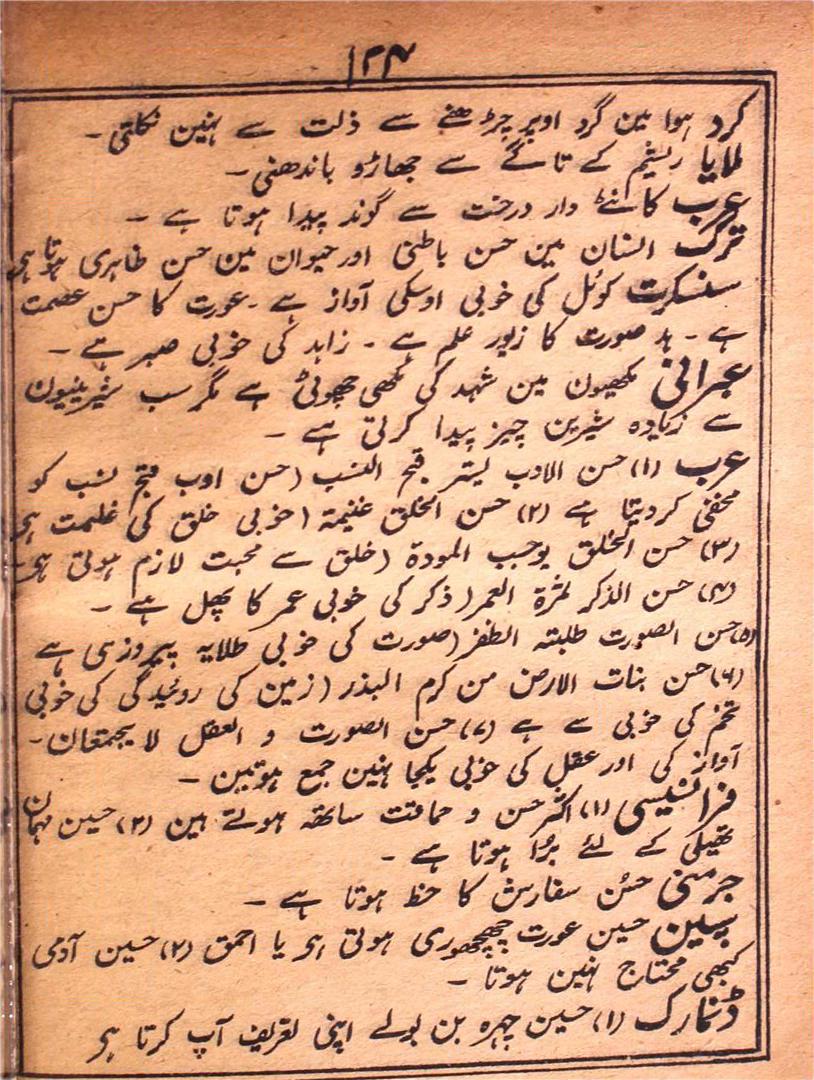 ۱۲۴
کرد ہوا مین گرد اوپر چڑھنے سے ذلت سے ہنین نکلتی۔
ملایا ریشم کے تاگے سے جھاڑو باندھنی۔
عرب کانٹے دار درخت سے گوند پیدا ہوتا ہے۔
ترک انسان مین حسن باطنی اور حیوان مین حسن ظاہری ہوتا ہی
سنسکرت کوئل کی خوبی اوسکی آواز ہے۔ عورت کا حسن عصمت
ہے۔ بد صورت کا زیور علم ہے۔ زاہد کی خوبی صبر ہے۔
عبرانی مکھیون مین شہد کی مکھی چھوٹی ہے مگر سب شیرینیون
سے زیادہ شیرین چیز پیدا کرتی ہے۔
عرب (۱) حسن الادب یستر قبح النسب (حسن ادب قبح نسب کو
مخفی کردیتا ہے (۲) حسن الخلق غنیمة (خوبی خلق کی غنیمت ہی
(۳) حسن الخلق یوجب المودة (خلق سے محبت لازم ہوتی ہی۔
(۴) حسن الذکر ثمرة العمر (ذکر کی خوبی عمر کا پھل ہے۔
(۵) حسن الصورت طلیتہ الظفر (صورت کی خوبی طلایہ پیروزی ہے
(۶) حسن بنات الارض من کرم البذر (زمین کی روئیدگی کی خوبی
تخم کی خوبی سے ہے (۷) حسن الصورت و العقل لا یجمتعان۔
آواز کی اور عقل کی خوبی یکجا ہنین جمع ہوتین۔
فرانسیسی (۱) اکثر حسن و حماقت ساتھ ہوتے ہین (۲) حسین مہمان
تھیلی کے لئے بڑا ہوتا ہے۔
جرمنی حسُن سفارش کا خط ہوتا ہے۔
سپین حسین عورت چھچھوری ہوتی ہی یا احمق (۲) حسین آدمی
کبھی محتاج ہنین ہوتا۔
ڈنمارک (۱) حسین چہرہ بن بولے اپنی تعریف آپ کرتا ہی